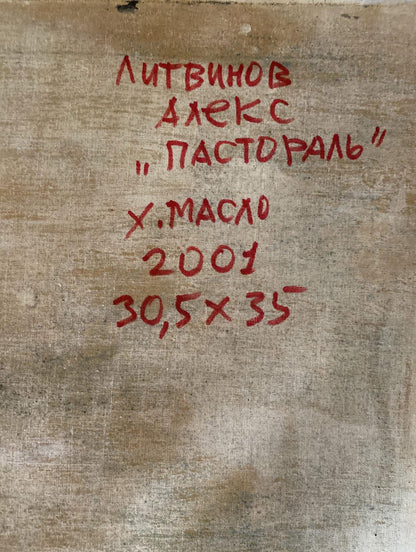 ЛИТВИНОВ
АЛЕКС
„ПАСТОРАЛЬ"
Х.МАСЛО
2001
30,5 х 35